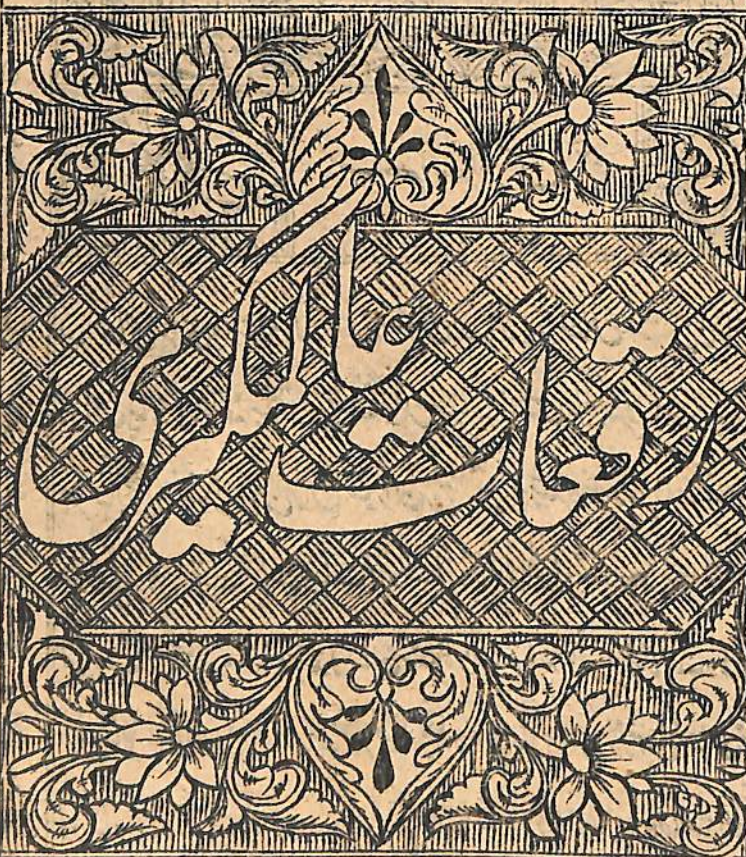 رقعات عالمگیری